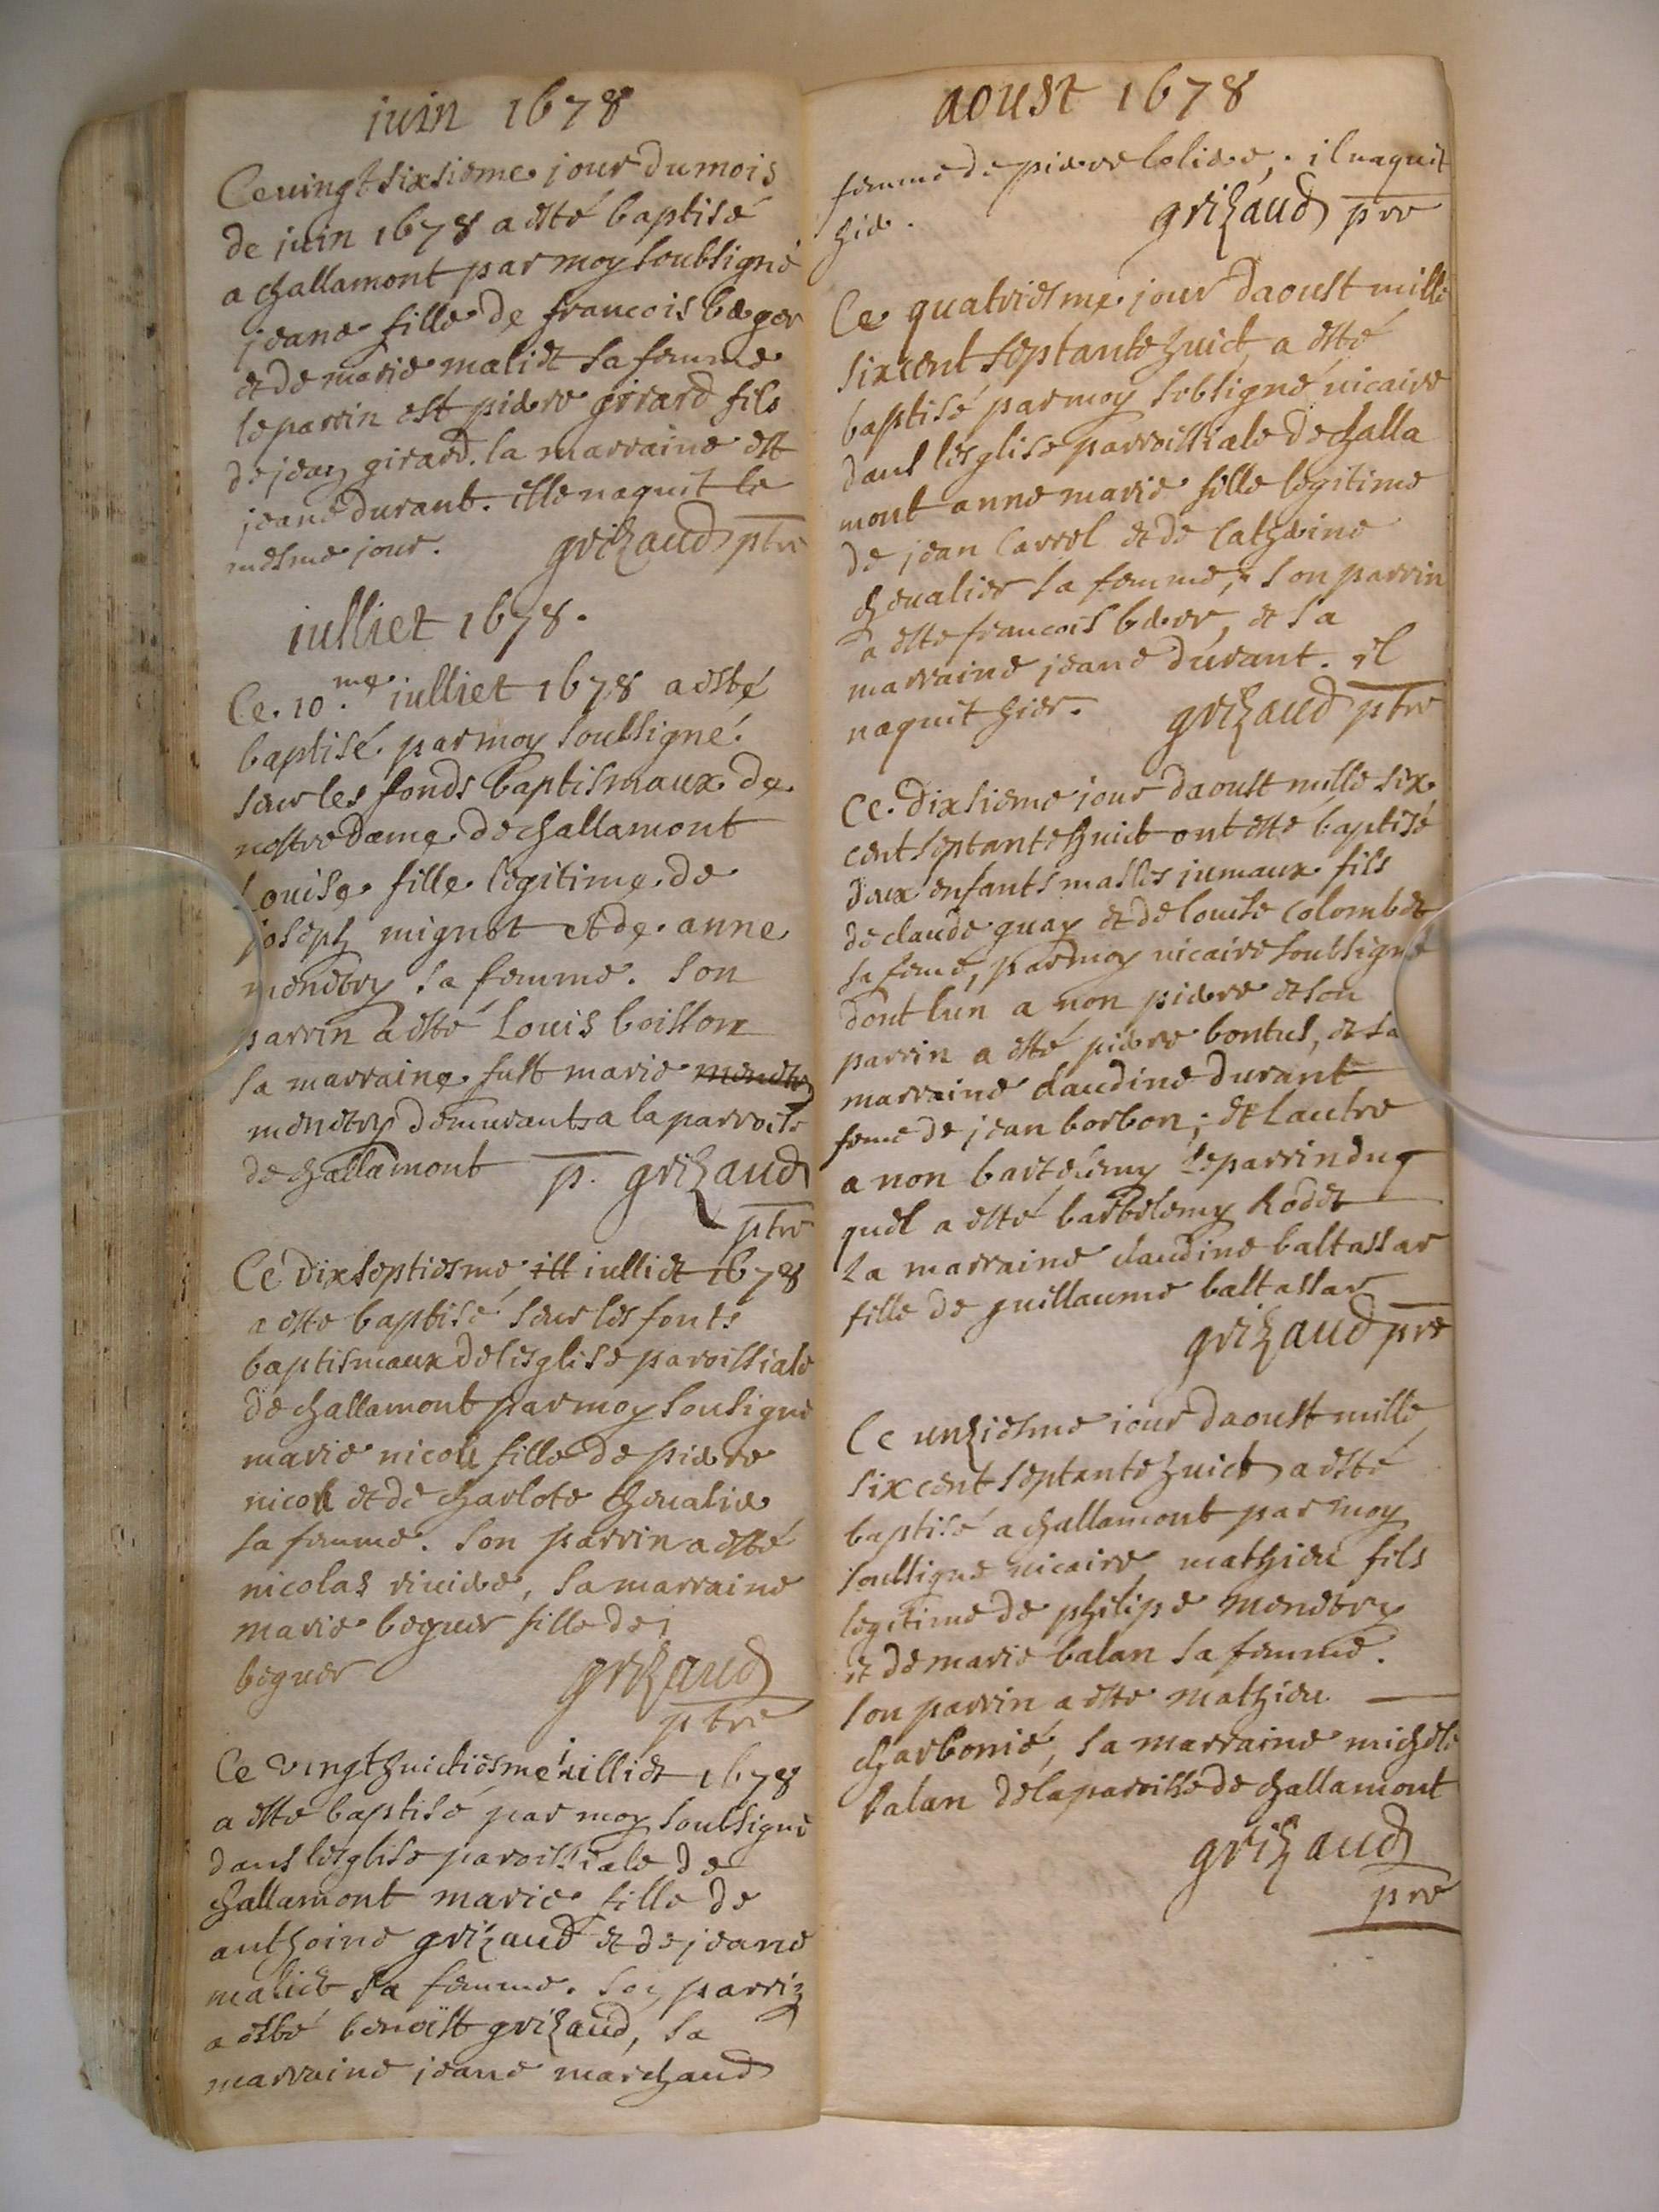 juin 1678
Ce vingt sixsieme jour du mois
de juin 1678 a esté baptisé
a challamont par moy soubsigné
jeane fille de francois beger
et de marie maliet sa femme
le parrin est pierre girard fils
de jean girard. la marraine est
jeane durant. elle naquit le
mesme jour. grizaud ptre
iulliet 1678.
Ce. 10.me iulliet 1678 a esté
baptisé par moy soubsigné.
seur les fonds baptismaux de
nostre dame de challamont
Louise fille legitime de
joseph mignot et de anne
menetry sa femme. son
parrin a esté Louis boisson
sa marraine fust marie menetry
menetry demurants a la parroise
de challamont p. grizaud
ptre
Ce dixseptiesme ill iulliet 1678
a este baptisé seur les fonts
baptismaux de lesglise paroissiale
de challamont par moy sousigné
marie nicoli fille de pierre
nicoli et de charlote chevalie
sa femme. son parrin a esté
nicolas riviere, sa marraine
marie beguer fille de
beguer grizaud
ptre
Ce vingthuictiesme iuilliet 1678
a este baptisé par moy soubsigné
dans lesglise paroissiale de
challamont marie fille de
anthoine grizaud et de jeane
maliet sa femme. son parrin
a esté benoist grizaud, sa
marraine jeane marchand
aoust 1678
femme de pierre leliere,. il naquit
hie. grizaud pre
Ce quatriesme jour daoust mille
sixcent septante huict a esté
baptisé par moy sobsigné vicaire
dans lesglise parroissiale de challa
mont anne marie fille legitime
de jean Carrel et de Catherine
chevalier sa femme, son parrin
a este francois berer, et sa
marraine jeane durant. il
naquit hier. grizaud ptre
Ce. dixsieme jour daoust mille six
cent septante huict ont esté baptisé
deux enfants masles jumaux fils
de claude guay et de louise colombet
sa feme, par moy vicaire soubsigné
dont lun a non pierre et son
parrin a esté pierre bontus, et sa
marraine claudine durant
feme de jean borbon; et lautre
a non bartelemy le parrin du
quel a esté bartelemy Rodet
La marraine claudine baltassar
fille de guillaume baltassar
grizaud pre
Ce unziesme iour daoust mille
six cent septante huict a esté
baptisé a challamont par moy
soussigné vicaire mathieu fils
legitime de philipe menetry
et de marie balan sa femme.
son parrin a este mathieu
charbonié, sa marraine michele
balan de la paroisse de challamont
grizaud
pre